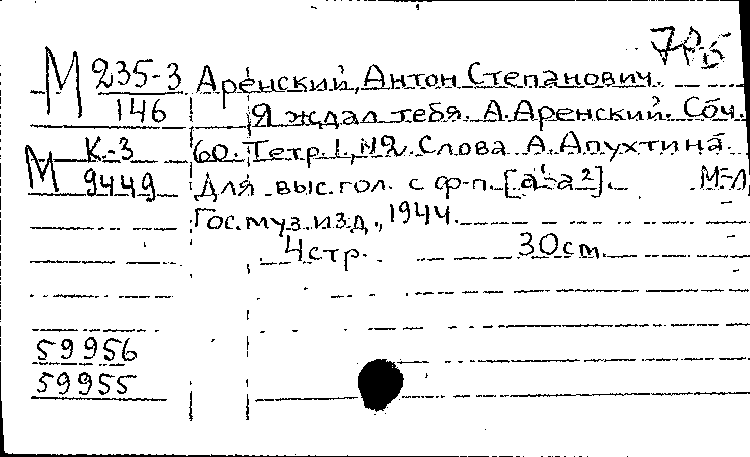 М 235-3 Аренский, Антон Степанович.
146 Я ждал тебя. А. Аренский. Соч.
К-3 60. Тетр. 1, №2. Слова А. Апухтина.
М 9449 Для выс. гол. с ф-п. [a¹-a²]. М-Л,
Гос. муз. изд., 1944.
4 стр. 30 cm.
59956
59955